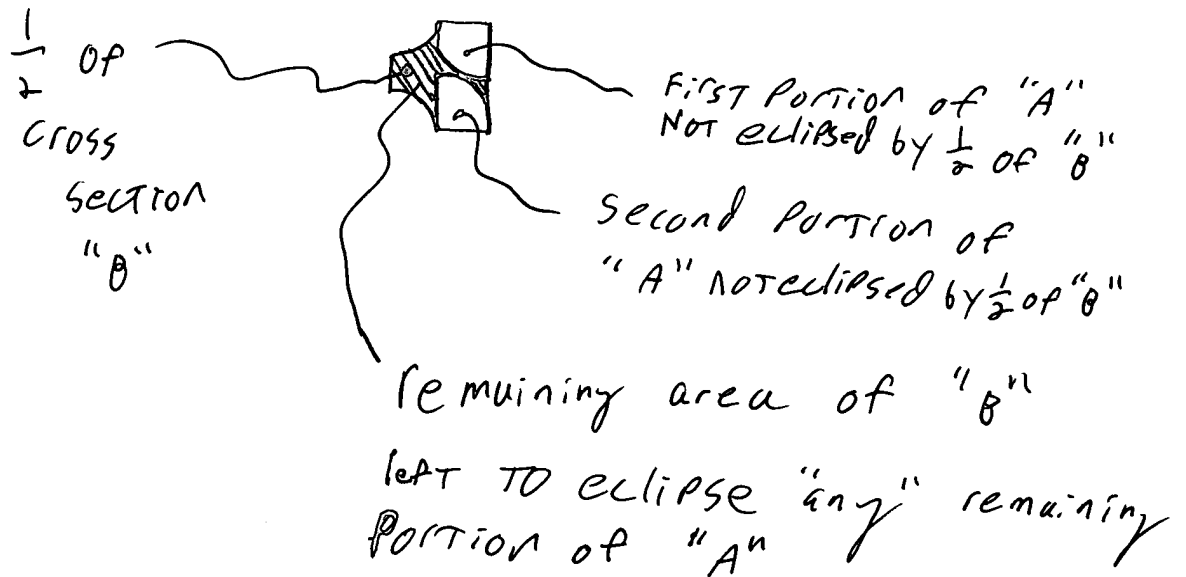 1/2 of
cross
section
"B"
First Portion of "A"
Not eclipsed by 1/2 of "B"
second portion of
"A" not eclipsed by 1/2 of "B"
remaining area of "B"
left to eclipse "any" remaining
Portion of "A"